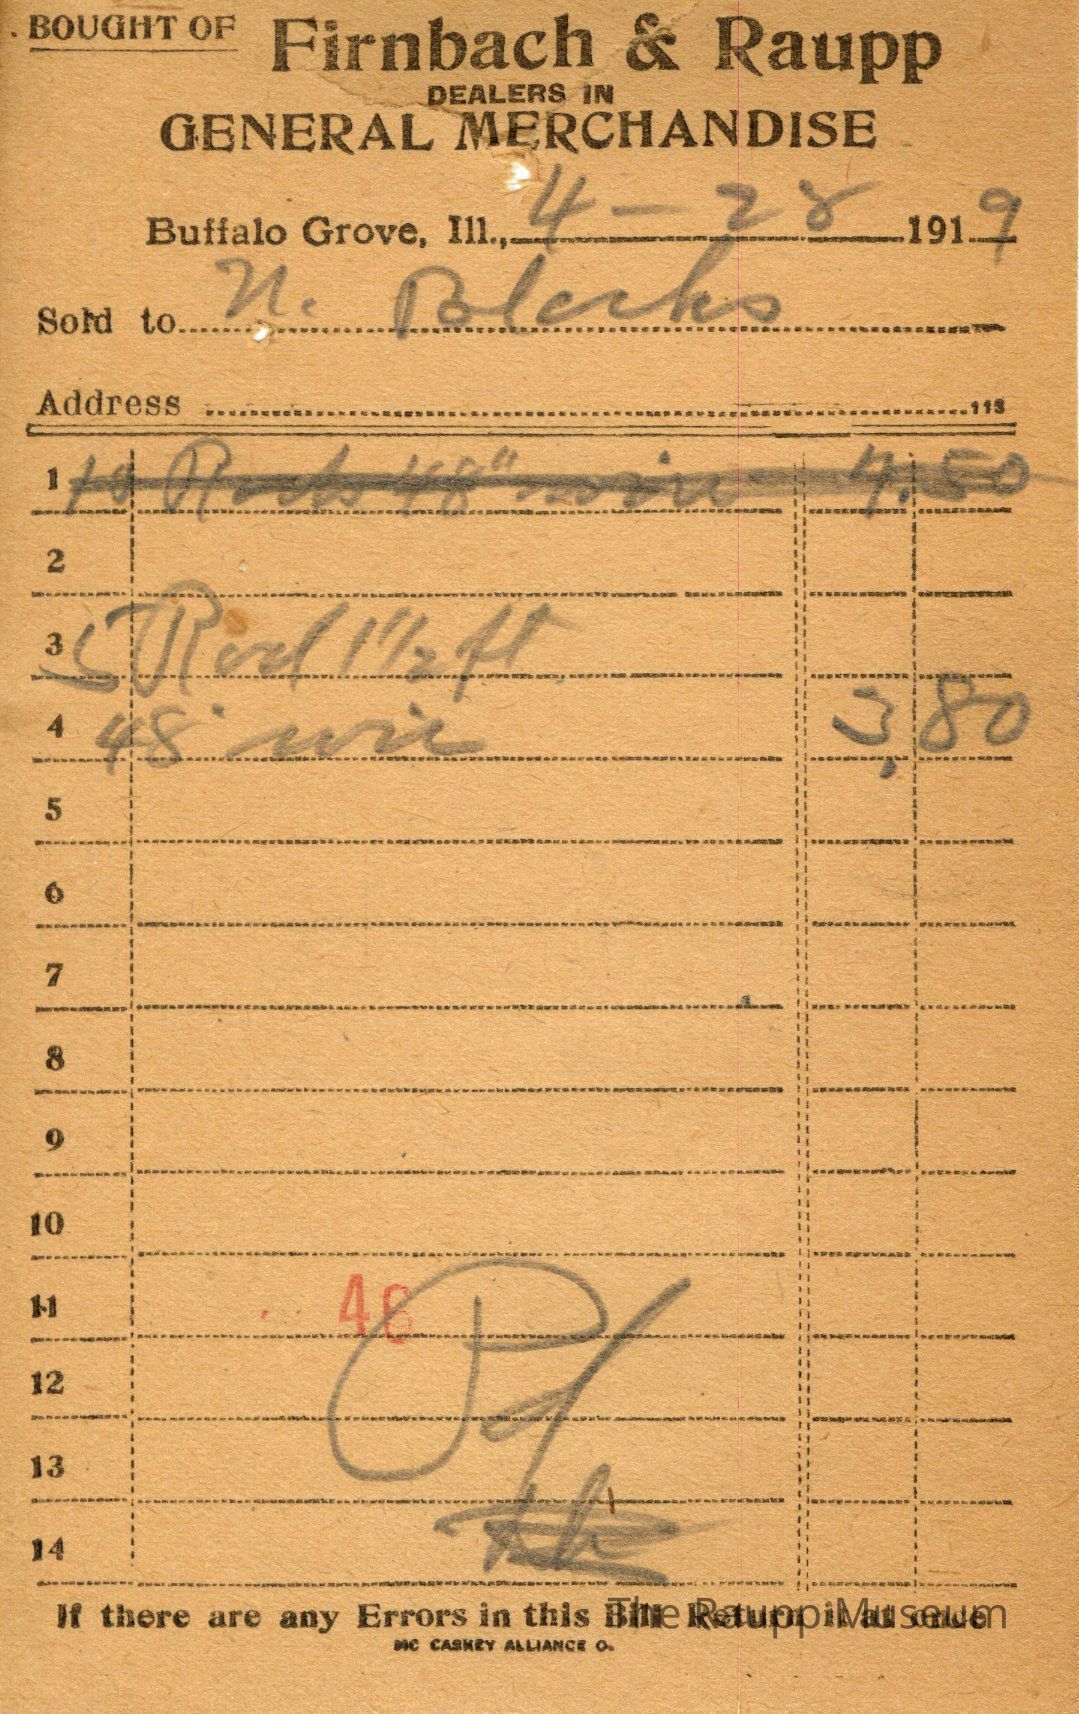 BOUGHT OF Firnbach & Raupp
DEALERS IN
GENERAL MERCHANDISE
Buffalo Grove, Ill., 4-28 1919
Sold to N.
Address 113
1 10 Rods 48" wire 4.50
2
3 5 Rod 1 1/2 ft
4 48" wire 3.80
5
6
7
8
9
10
11 46
12 Pd
13
14
If there are any Errors in this Bill Return it at once
The Raupp Museum
MC CASKEY ALLIANCE O.